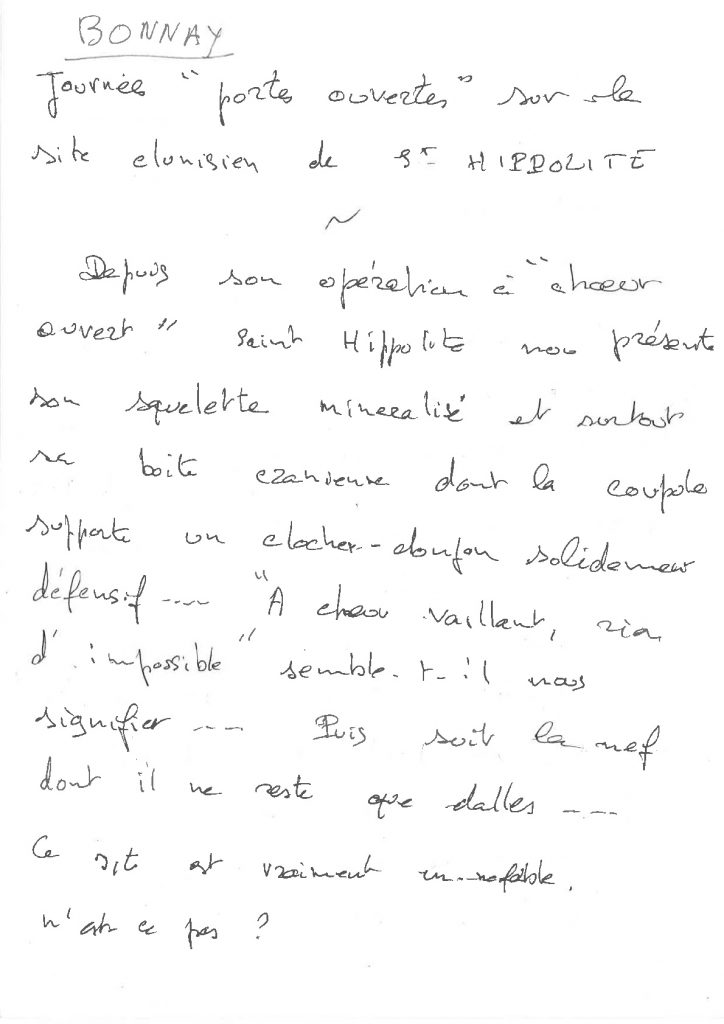 BONNAY
Journée "portes ouvertes" sur le
site clunisien de St HIPPOLITE
~
Depuis son opération à "chœur
ouvert" Saint Hippolite nous présente
son squelette mineralisé et surtout
sa boite cranienne dont la coupole
supporte un clocher-donjon solidement
défensif .... "A chœur vaillant, rien
d'impossible" semble-t-il nous
signifier ... Puis suit la nef
dont il ne reste que dalles ....
Ce site est vraiment in-nefable,
n'est ce pas ?